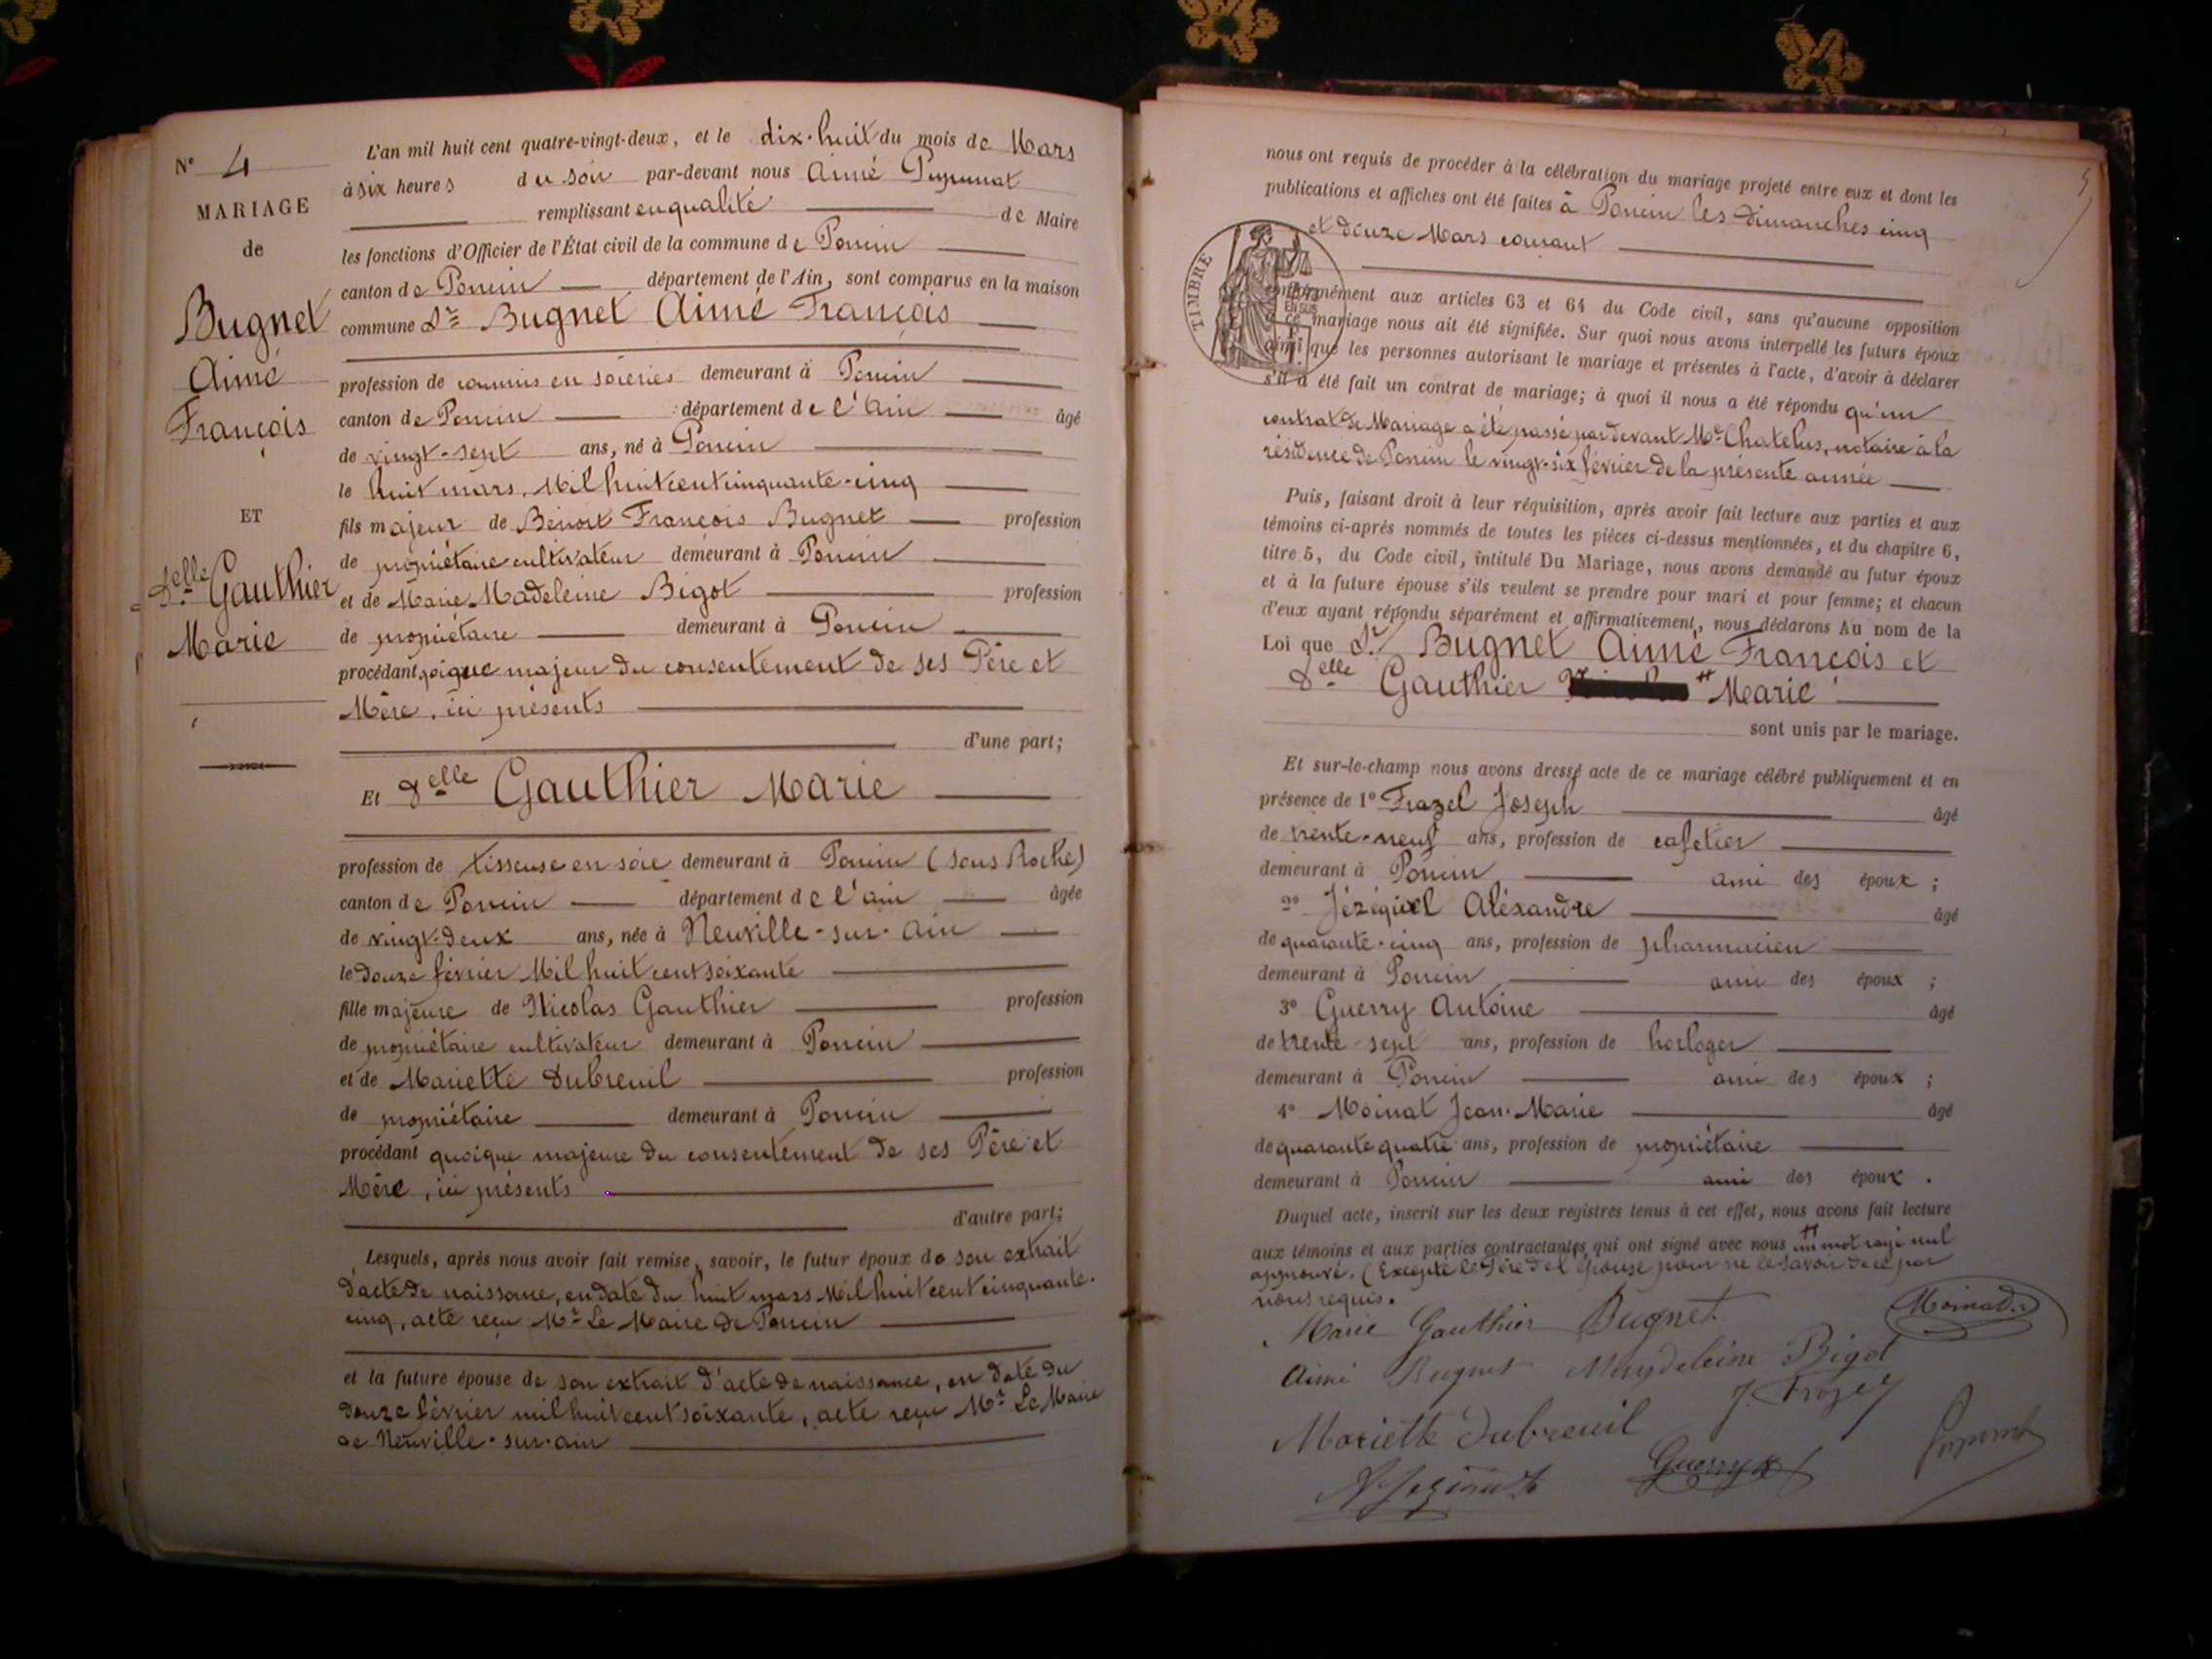 N° 4
MARIAGE
de
Bugnet
Aimé
François
ET
Delle Gauthier
Marie
L'an mil huit cent quatre-vingt-deux, et le dix-huit du mois de Mars
à six heures du soir par-devant nous Aimé
remplissant en qualité de Maire
les fonctions d'Officier de l'État civil de la commune de Poncin
canton de Poncin département de l'Ain, sont comparus en la maison
commune Sr Bugnet Aimé François
profession de commis en soieries demeurant à Poncin
canton de Poncin département de l'Ain âgé
de vingt-sept ans, né à Poncin
le huit mars, Mil huit cent cinquante-cinq
fils majeur de Benoit François Bugnet profession
de propriétaire cultivateur demeurant à Poncin
et de Marie Madeleine Bigot profession
de propriétaire demeurant à Poncin
procédant quoique majeur du consentement de ses Père et
Mère, ici présents
d'une part;
Et Delle Gauthier Marie
profession de tisseuse en soie demeurant à Poncin (sous Roche)
canton de Poncin département de l'ain âgée
de vingt-deux ans, née à Neuville-sur-Ain
le douze février Mil huit cent soixante
fille majeure de Nicolas Gauthier profession
de propriétaire cultivateur demeurant à Poncin
et de Mariette Dubreuil profession
de propriétaire demeurant à Poncin
procédant quoique majeure du consentement de ses Père et
Mère, ici présents
d'autre part;
Lesquels, après nous avoir fait remise, savoir, le futur époux de son extrait
d'acte de naissance, en date du huit mars Mil huit cent cinquante-
cinq, acte reçu Mr Le Maire de Poncin
et la future épouse de son extrait d'acte de naissance, en date du
douze février mil huit cent soixante, acte reçu Mr Le Maire
de Neuville-sur-ain
5
nous ont requis de procéder à la célébration du mariage projeté entre eux et dont les
publications et affiches ont été faites à Poncin les dimanches cinq
et douze Mars courant
TIMBRE
EN SUS
conformément aux articles 63 et 64 du Code civil, sans qu'aucune opposition
à ce mariage nous ait été signifiée. Sur quoi nous avons interpellé les futurs époux
ainsi que les personnes autorisant le mariage et présentes à l'acte, d'avoir à déclarer
s'il a été fait un contrat de mariage; à quoi il nous a été répondu qu'un
contrat de Mariage a été passé par devant Me Chatelus, notaire à la
résidence de Poncin le vingt-six février de la présente année
Puis, faisant droit à leur réquisition, après avoir fait lecture aux parties et aux
témoins ci-après nommés de toutes les pièces ci-dessus mentionnées, et du chapitre 6,
titre 5, du Code civil, intitulé Du Mariage, nous avons demandé au futur époux
et à la future épouse s'ils veulent se prendre pour mari et pour femme; et chacun
d'eux ayant répondu séparément et affirmativement, nous déclarons Au nom de la
Loi que Sr Bugnet Aimé François et
Delle Gauthier # Marie
sont unis par le mariage.
Et sur-le-champ nous avons dressé acte de ce mariage célébré publiquement et en
présence de 1° Frazel Joseph âgé
de trente-neuf ans, profession de cafetier
demeurant à Poncin ami des époux ;
2° Jézéquel Aléxandre âgé
de quarante-cinq ans, profession de pharmacien
demeurant à Poncin ami des époux ;
3° Guerry Antoine âgé
de trente-sept ans, profession de horloger
demeurant à Poncin ami des époux ;
4° Moinat Jean-Marie âgé
de quarante quatre ans, profession de propriétaire
demeurant à Poncin ami des époux .
Duquel acte, inscrit sur les deux registres tenus à cet effet, nous avons fait lecture
aux témoins et aux parties contractantes qui ont signé avec nous # un mot rayé nul
approuvé. (Excepté le Père de l'épouse pour ne le savoir de ce par
nous requis.
Marie Gauthier Bugnet
Moinat
Aimé Bugnet Magdeleine Bigot
J. Frazel
Mariette Dubreuil
Guerry